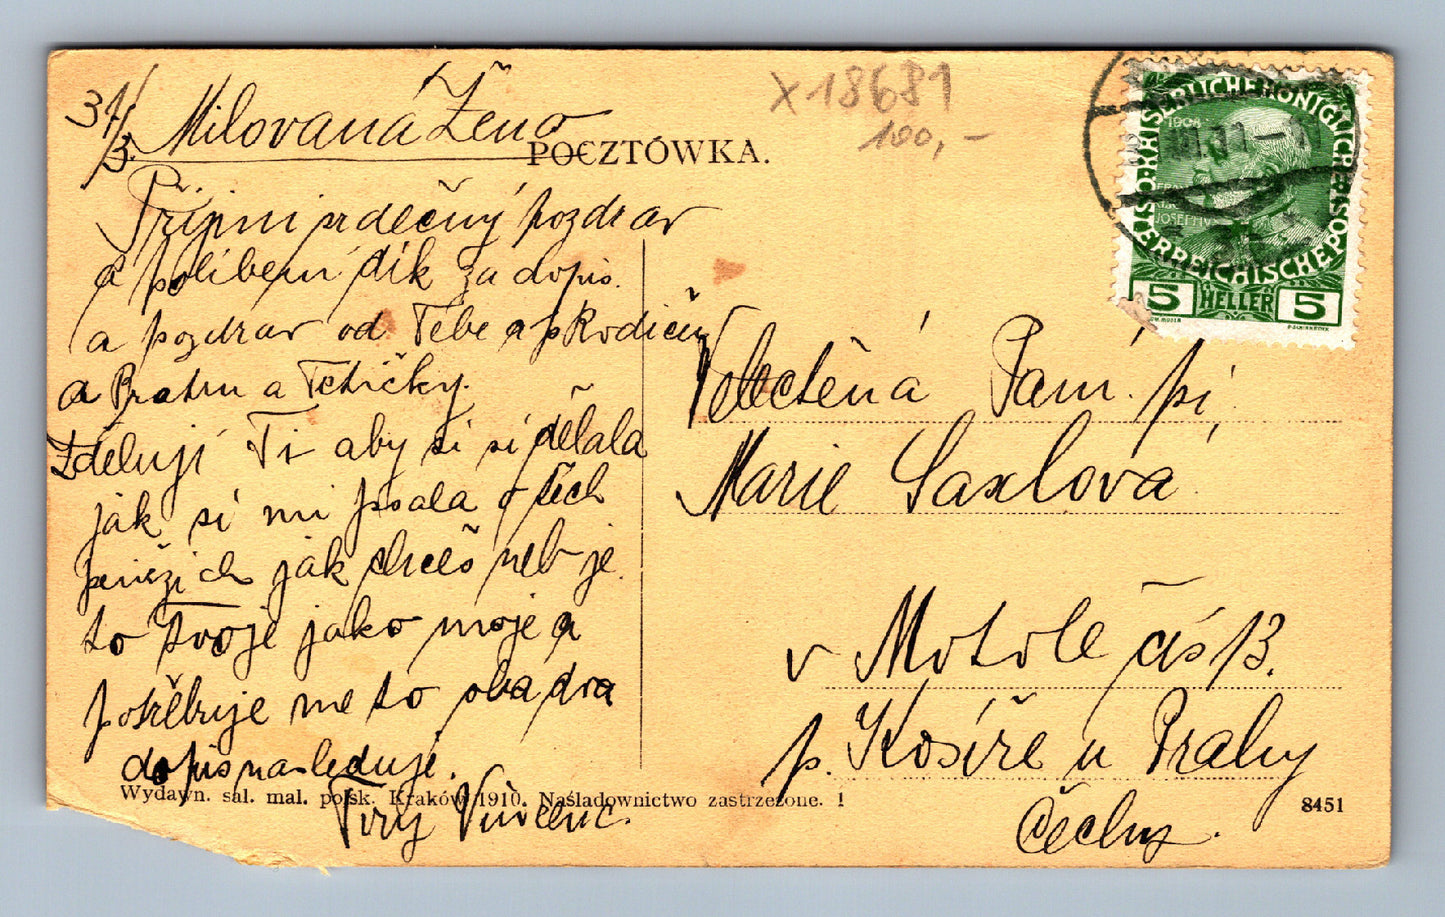 31/3.
Milovaná Ženo
POCZTÓWKA.
X 18681
100,-
Přijmi srdečný pozdrav
a políbení dík za dopis.
a pozdrav od Tebe a p Rodičů
a Bratru a Tetičky.
Zděluji Ti aby si si dělala
jak si mi psala o těch
penězích jak chceš neb je
to Tvoje jako moje a
potřebuje me to oba dva
dopis následuje.
Tvůj Vincenc.
Velectěná Paní. pí,
Marie Saxlová
v Motole čís 13.
p. Košíře u Prahy
Čechy.
1908
5 HELLER 5
Wydawn. sal. mal. polsk. Kraków 1910. Naśladownictwo zastrzeżone. 1
8451